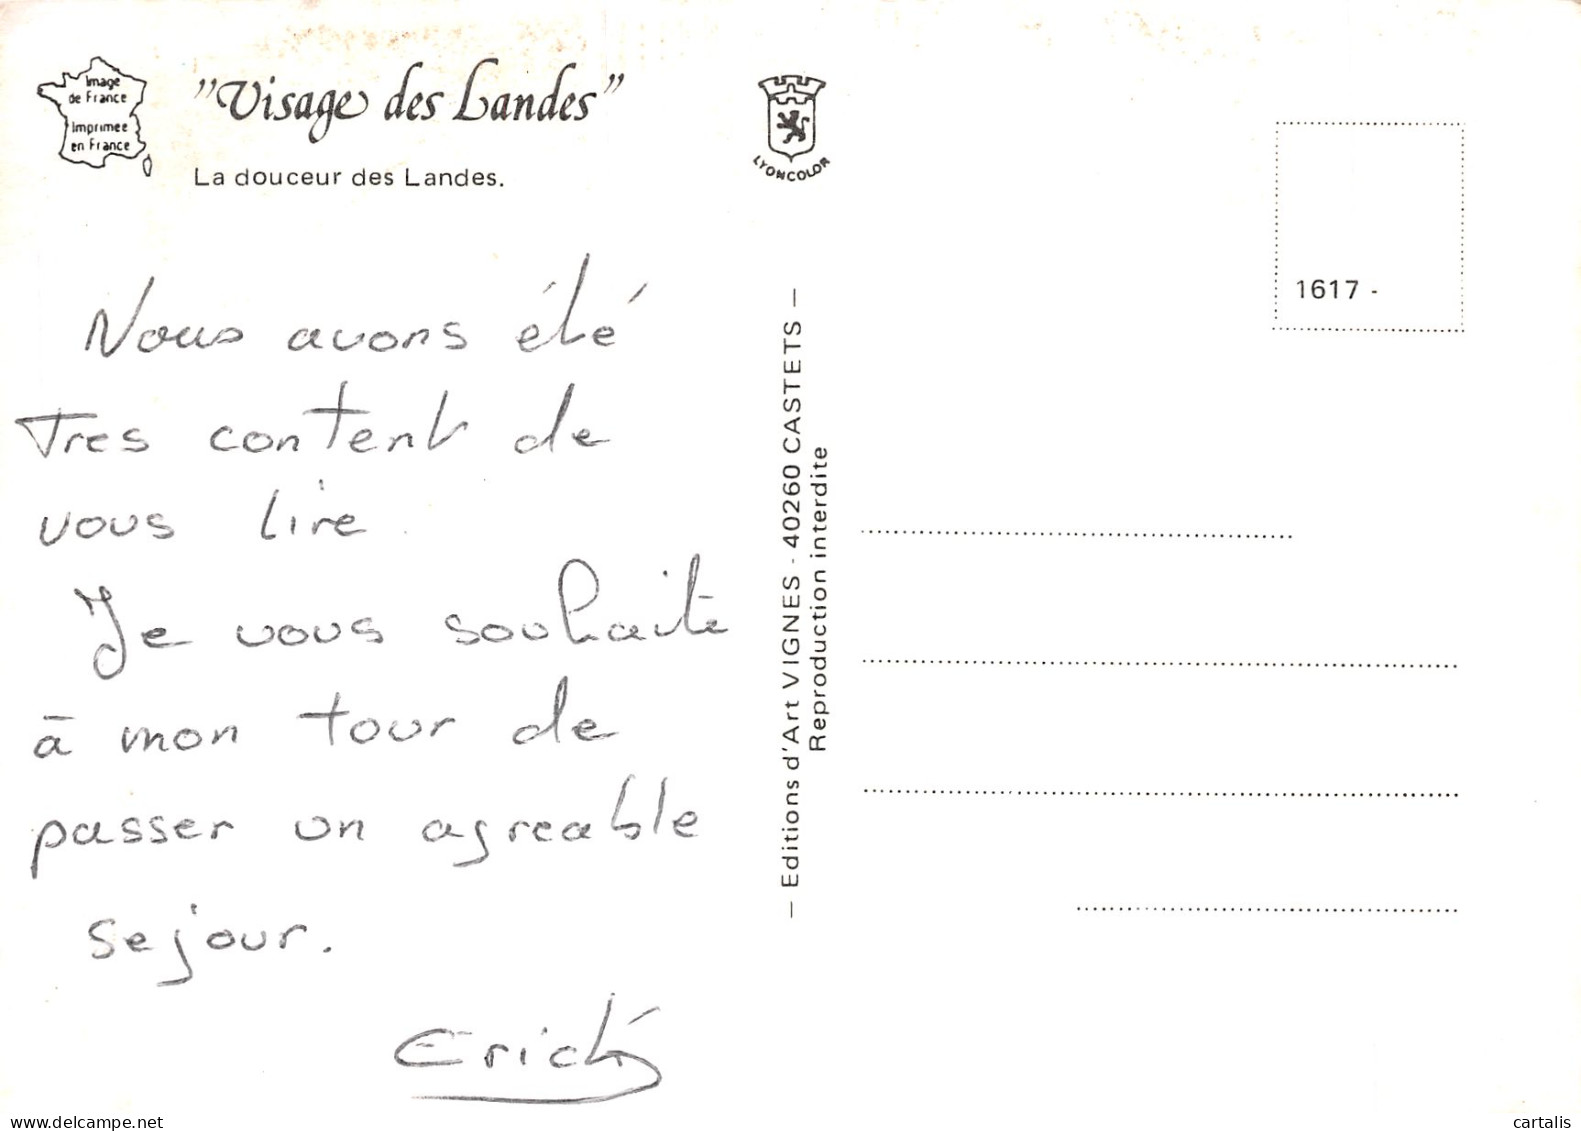 Image
de France
Imprimée
en France
"Visage des Landes"
La douceur des Landes.
LYONCOLOR
1617 -
Nous avons été
Tres content de
vous lire.
Je vous souhaite
à mon tour de
passer un agreable
sejour.
— Editions d'Art VIGNES - 40260 CASTETS —
Reproduction interdite
www.delcampe.net
cartalis